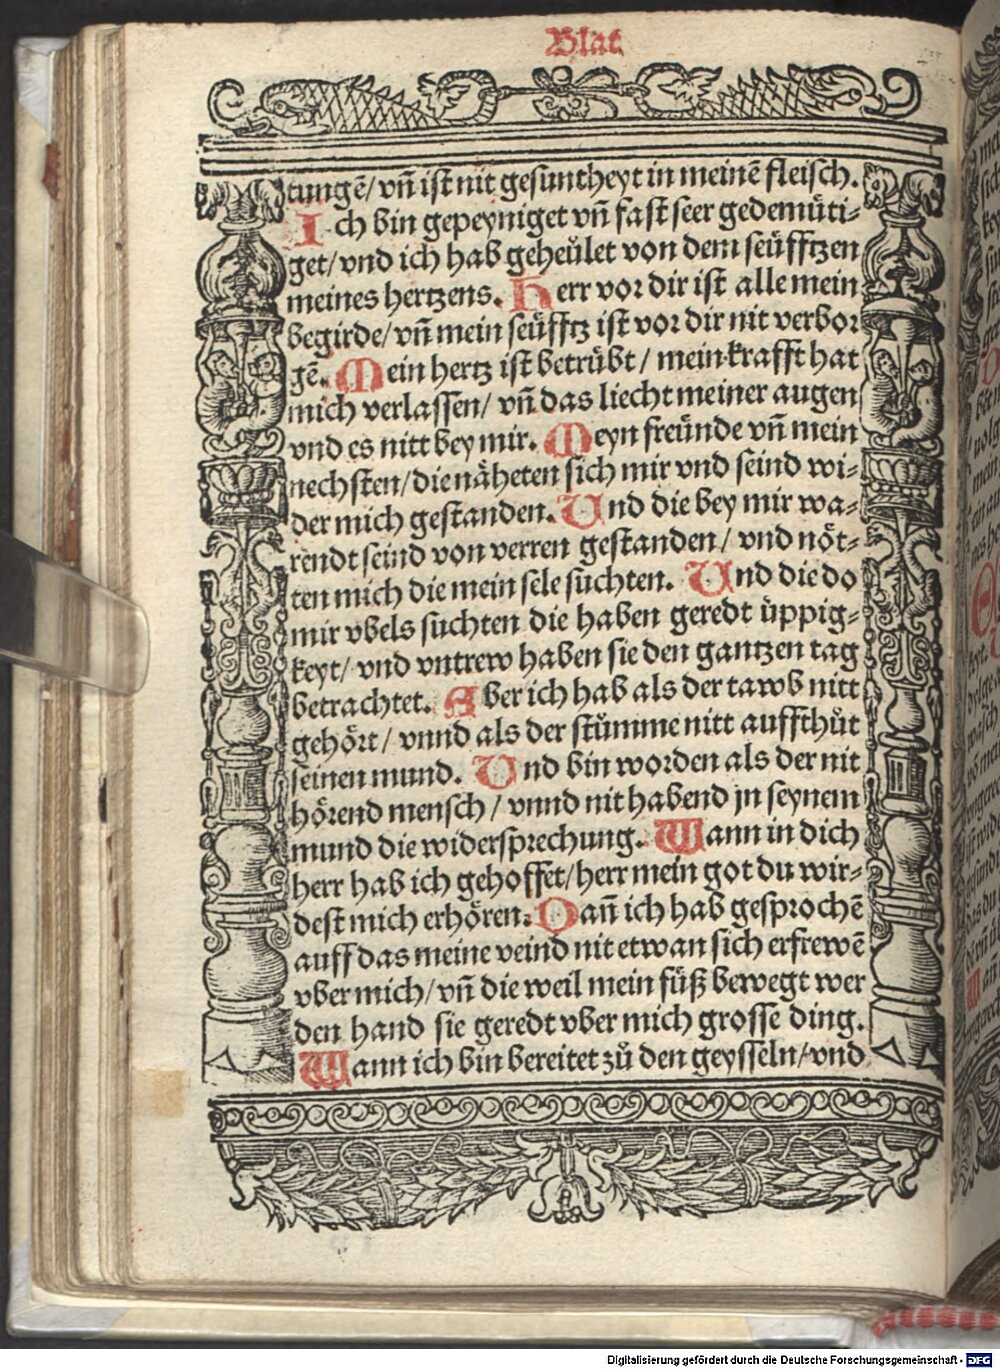 Blat
tungē/ vn̄ ist nit gesuntheyt in meinē fleisch.
Ich bin gepeyniget vn̄ fast seer gedemüti⸗
get/ vnd ich hab geheület von dem seüfftzen
meines hertzens. Herr vor dir ist alle mein
begirde/ vn̄ mein seüfftz ist vor dir nit verbor
gē. Mein hertz ist betrübt/ mein krafft hat
mich verlassen/ vn̄ das liecht meiner augen
vnd es nitt bey mir. Meyn freünde vn̄ mein
nechsten/ die näheten sich mir vnd seind wi⸗
der mich gestanden. Und die bey mir wa⸗
rendt seind von verren gestanden/ vnd nöt⸗
ten mich die mein sele suchten. Und die do
mir vbels suchten die haben geredt üppig⸗
keyt/ vnd vntrew haben sie den gantzen tag
betrachtet. Aber ich hab als der tawb nitt
gehört/ vnnd als der stümme nitt auffthůt
seinen mund. Und bin worden als der nit
hörend mensch/ vnnd nit habend jn seynem
mund die widersprechung. Wann in dich
herr hab ich gehoffet/ herr mein got du wir⸗
dest mich erhören. Dan̄ ich hab gesprochē
auff das meine veind nit etwan sich erfrewē
vber mich/ vn̄ die weil mein füß bewegt wer
den hand sie geredt vber mich grosse ding.
Wann ich bin bereitet zů den geysseln/ vnd
Digitalisierung gefördert durch die Deutsche Forschungsgemeinschaft - DFG